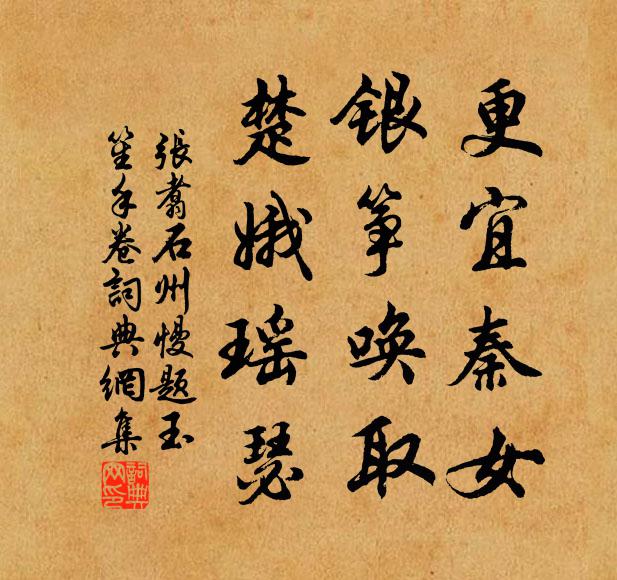 更宜秦女
银筝唤取
楚娥瑶瑟
張翥石州慢题玉
笙手卷詞典網集
詞典網印